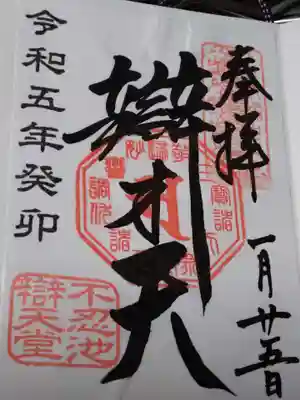 奉拝
一月廿五日
辯才天
令和五年癸卯
不忍池
辯天堂